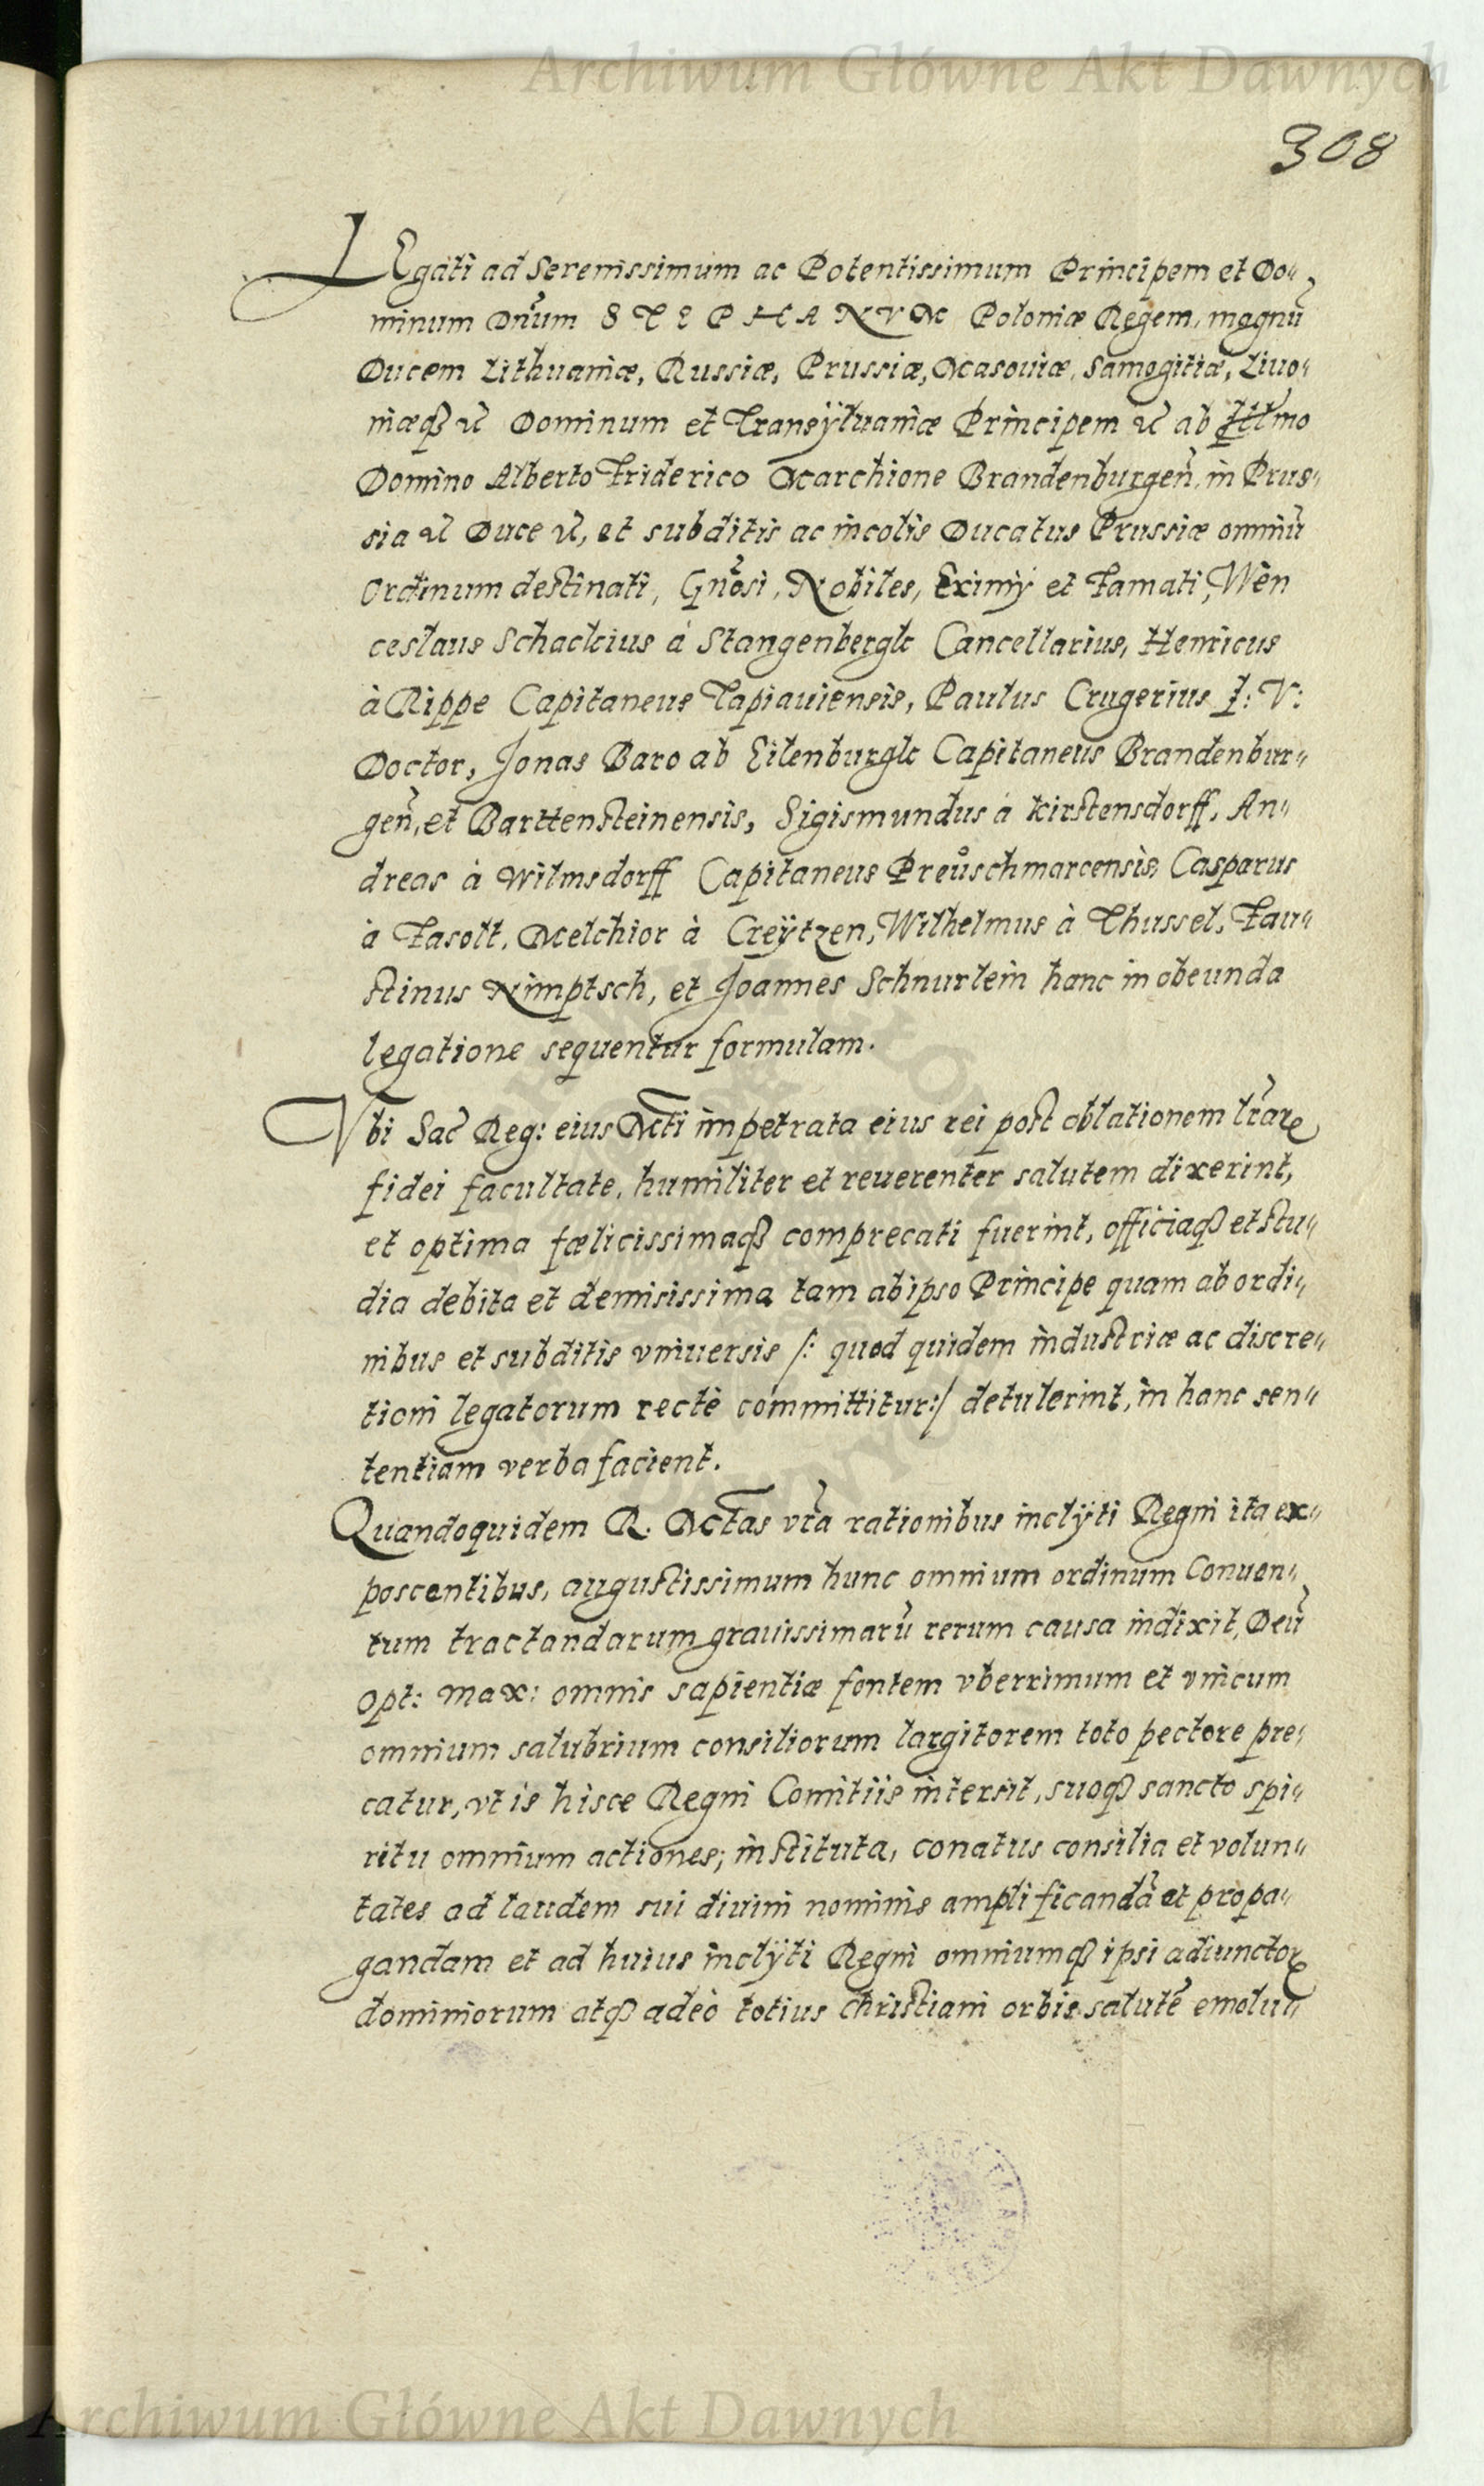 Archiwum Główne Akt Dawnych
308
LEgati ad Serenissimum ac Potentissimum Principem et Do„
minum Dnũm STEPHANVM Poloniæ Regem, magnũ
Ducem Lithuaniæ, Russiæ, Prussiæ, Masouiæ, Samogitiæ, Liuo„
niæqꝫ ꝛc Dominum et Transÿluaniæ Principem ꝛc ab Illmo
Domino Alberto Friderico Marchione Brandenburgeñ, in Prus„
sia ꝛc Duce ꝛc, et subditis ac incolis Ducatus Prussiæ omniũ
Ordinum destinati, Gnõsi, Nobiles, Eximÿ et Famati, Wen
ceslaus Schackius à Stangenbergk Cancellarius, Henricus
à Rippe Capitaneus Tapiauiensis, Paulus Crugerius J: V:
Doctor, Jonas Baro ab Eilenburgk Capitaneus Brandenbur„
geñ, et Barttensteinensis, Sigismundus à Kirstensdorff, An„
dreas à Wilmsdorff Capitaneus Preůschmarcensis, Casparus
à Fasolt, Melchior à Creÿtzen, Wilhelmus à Thussel, Fau„
stinus Nimptsch, et Joannes Schnurlein hanc in obeunda
legatione sequentur formulam.
Vbi Sac̃ Reg: eius Mti impetrata eius rei post oblationem lr̃arꝫ
fidei facultate, humiliter et reuerenter salutem dixerint,
et optima fœlicissimaqꝫ comprecati fuerint, officiaqꝫ et stu„
dia debita et demisissima tam ab ipso Principe quam ab ordi„
nibus et subditis vniuersis /: quod quidem industriæ ac discre„
tioni legatorum rectè committitur:/ detulerint, in hanc sen„
tentiam verba facient.
Quandoquidem R. Mtas vr̃a rationibus inclÿti Regni ita ex„
poscentibus, augustissimum hunc omnium ordinum Conuen„
tum tractandarum grauissimarũ rerum causa indixit, Deũ
Opt: Max: omnis sapientiæ fontem vberrimum et vnicum
omnium salubrium consiliorum largitorem toto pectore pre„
catur, vt is hisce Regni Comitiis intersit, suoqꝫ sancto spi„
ritu omnium actiones, instituta, conatus consilia et volun„
tates ad laudem sui diuini nominis amplificandã et propa„
gandam et ad huius inclÿti Regni omniumqꝫ ipsi adiunctorꝫ
dominiorum atqꝫ adeò totius christiani orbis salutẽ emolu„
Archiwum Główne Akt Dawnych